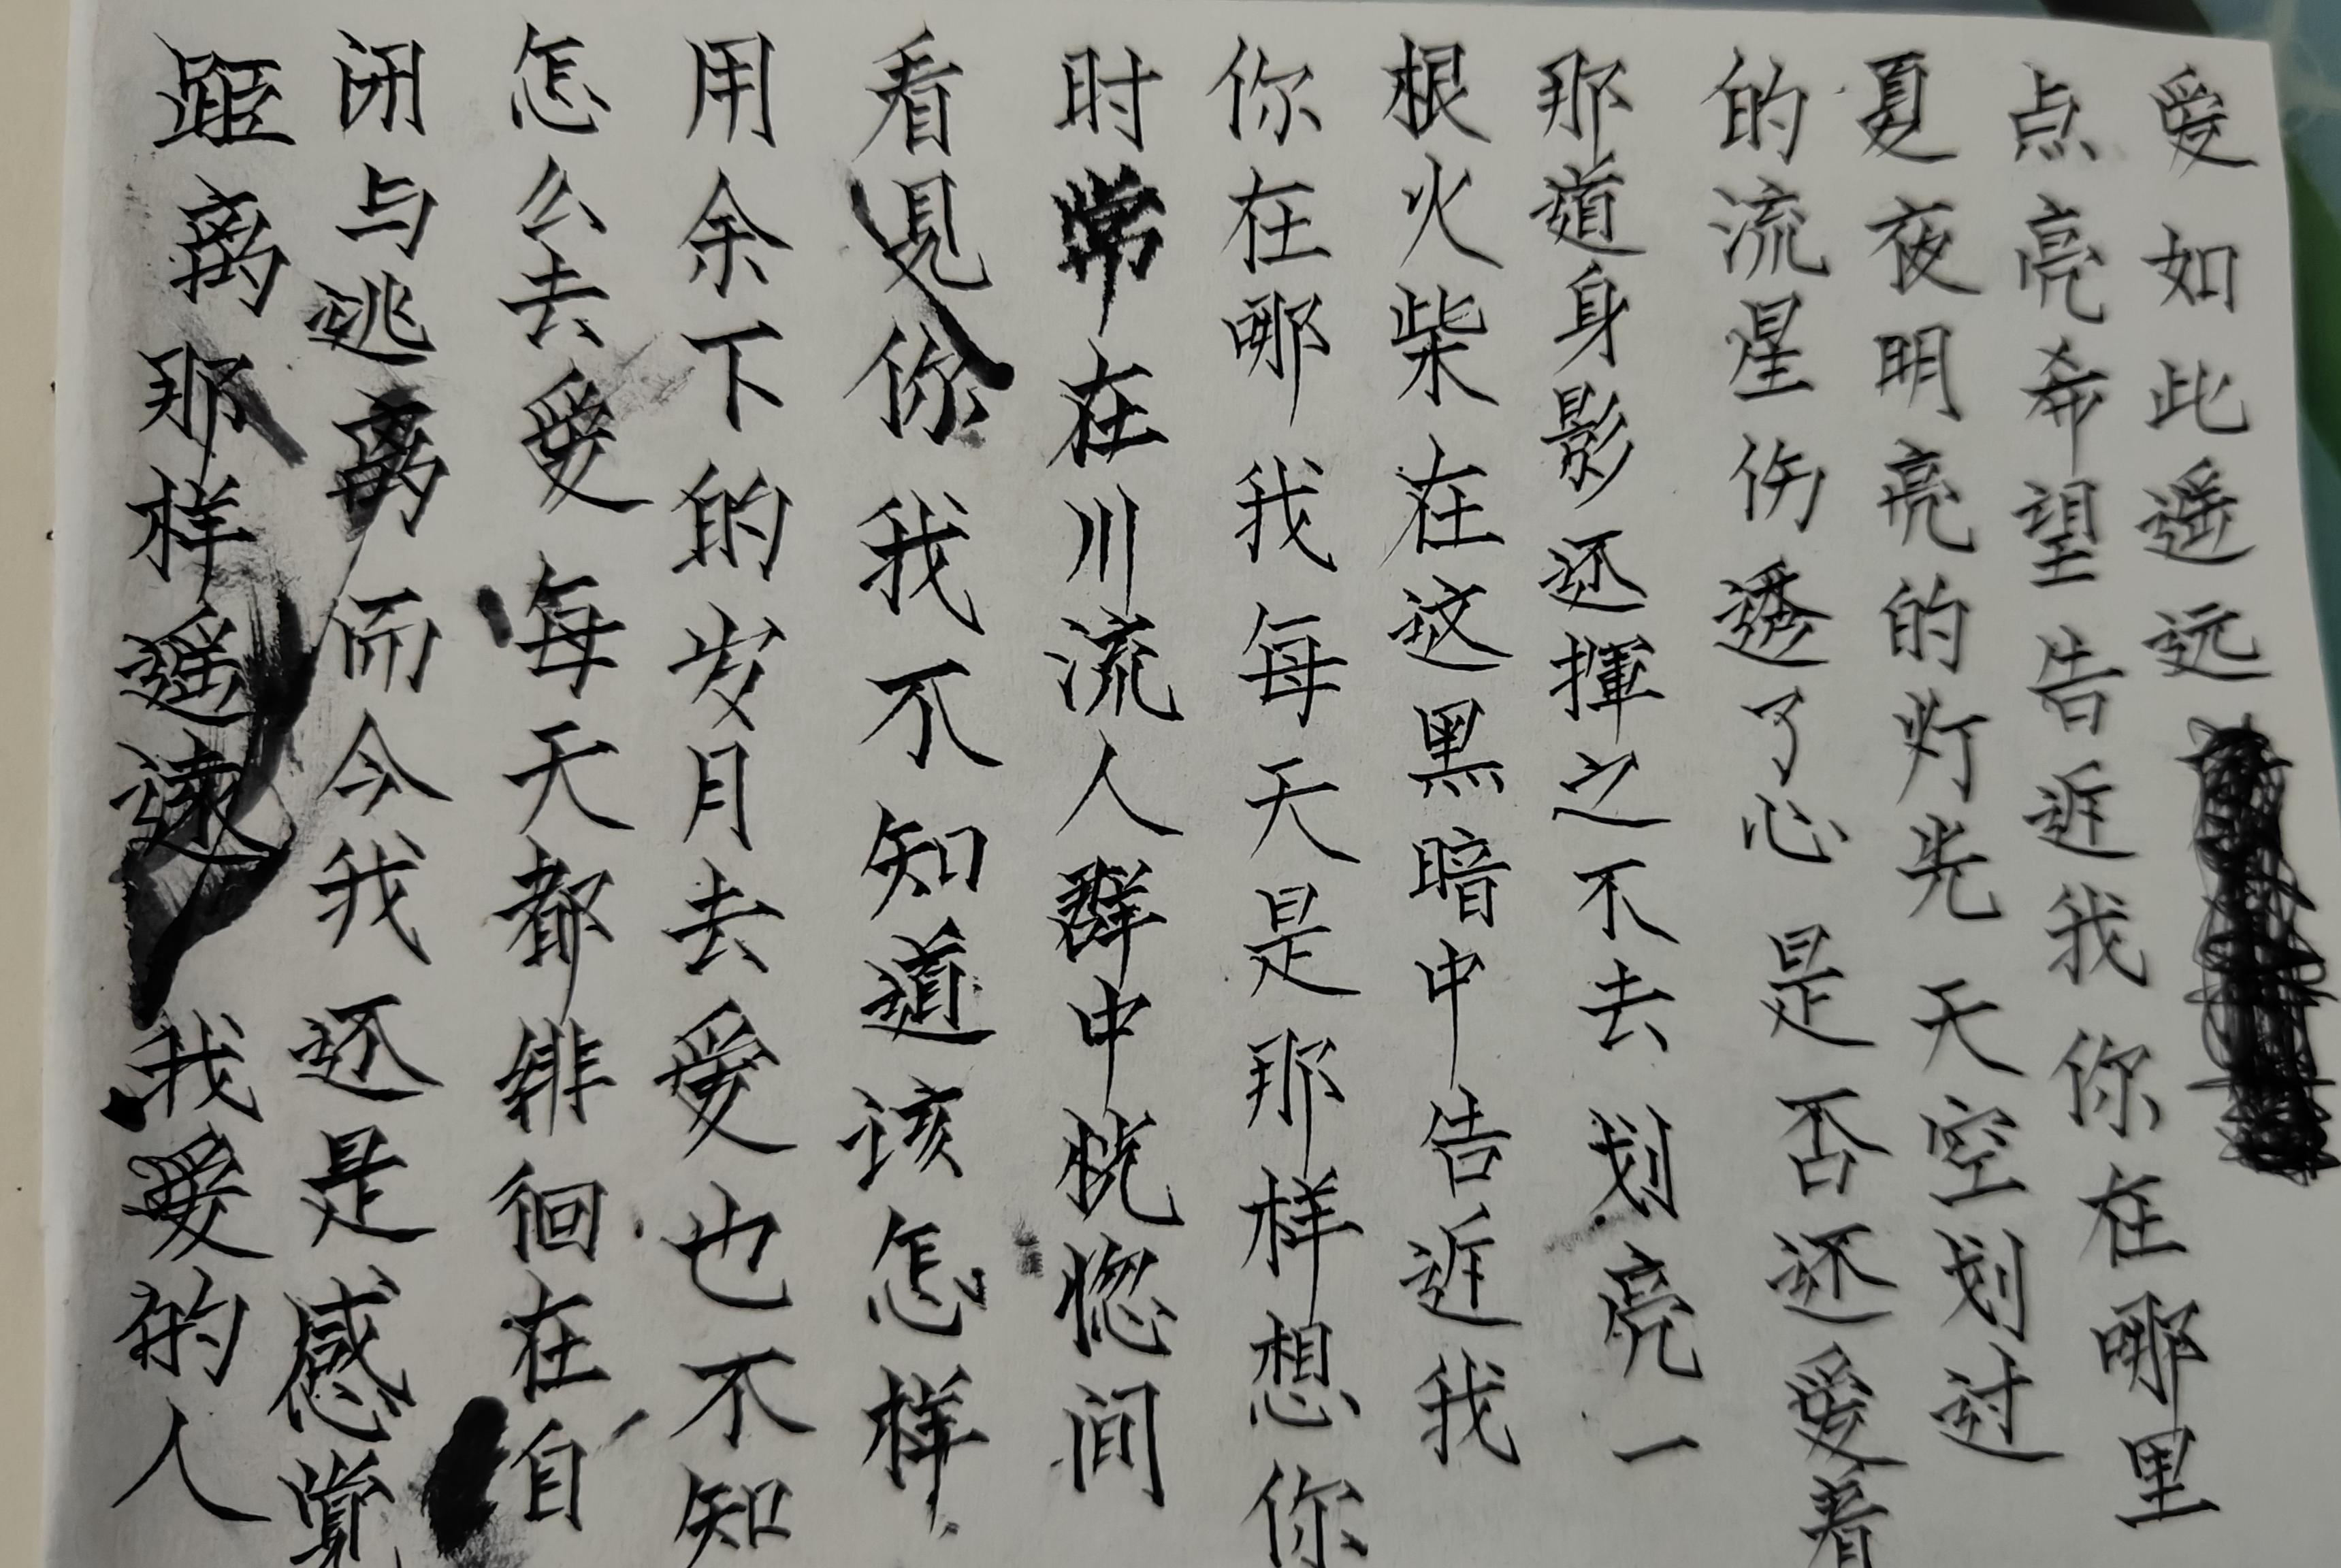 愛如此遥远
点亮希望告近我你在哪里
夏夜明亮的灯光天空划过
的流星伤透了心是否还愛着
那道身影还揮之不去划亮一
根火柴在这黑暗中告近我
你在哪我每天是那样想你
时常在川流人群中恍惚间
看見你我不知道该怎样
用余下的岁月去愛也不知
怎么去愛每天都徘徊在自
闭与逃离而今我还是感覚
距离那样遥遠我愛的人